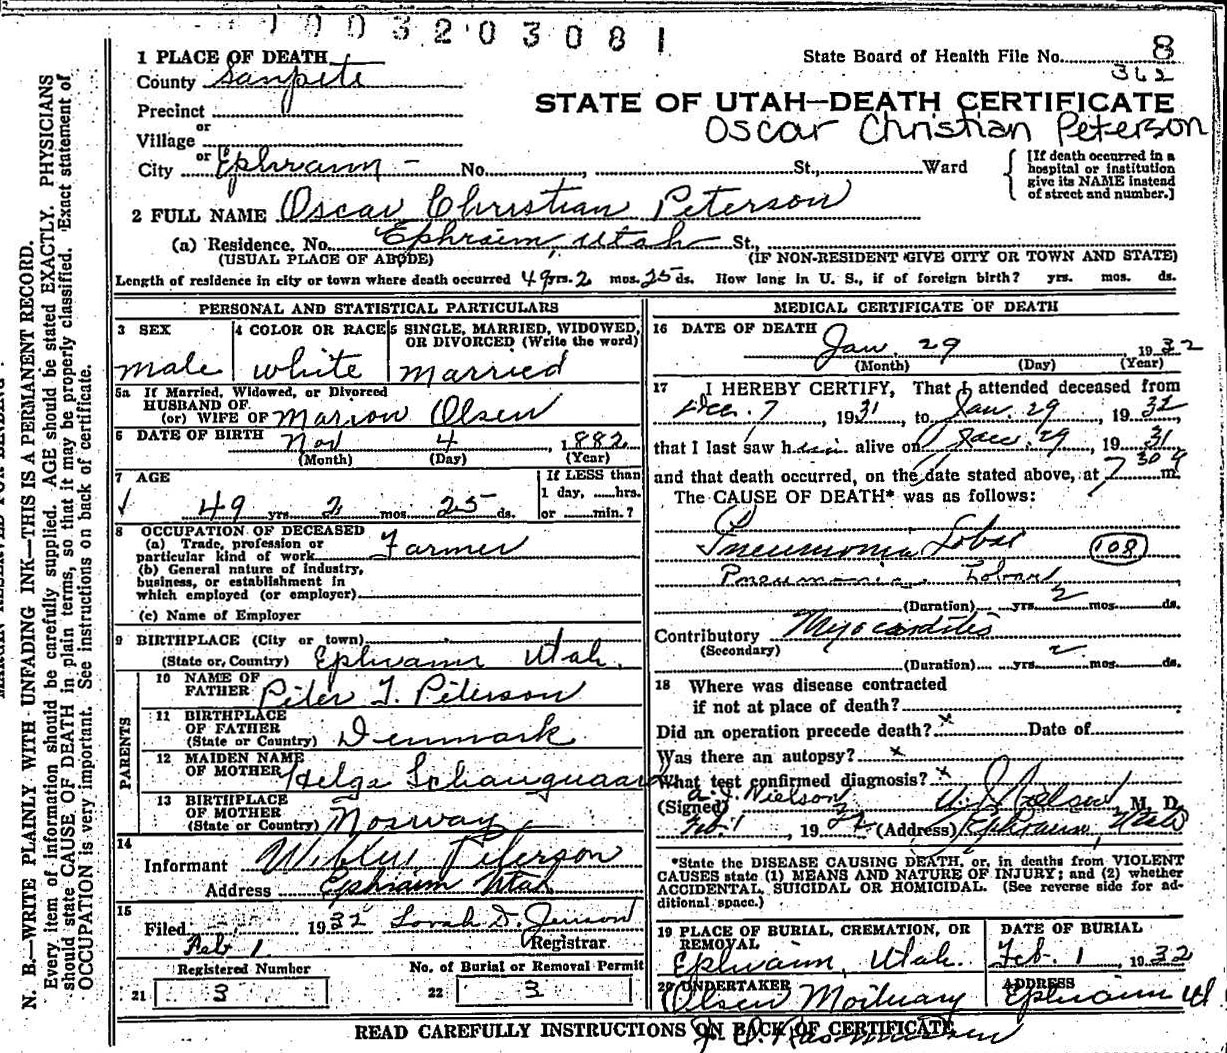 1003203081
1 PLACE OF DEATH
State Board of Health File No. 8
County Sanpete
362
Precinct
STATE OF UTAH—DEATH CERTIFICATE
or
Village
Oscar Christian Peterson
or
City Ephraim - No. , St., Ward
[If death occurred in a
hospital or institution
give its NAME instead
of street and number.]
2 FULL NAME Oscar Christian Peterson
(a) Residence. No. Ephraim, Utah St.,
(USUAL PLACE OF ABODE) (IF NON-RESIDENT GIVE CITY OR TOWN AND STATE)
Length of residence in city or town where death occurred 49 yrs. 2 mos. 25 ds. How long in U. S., if of foreign birth? yrs. mos. ds.
PERSONAL AND STATISTICAL PARTICULARS
3 SEX
male
4 COLOR OR RACE
white
5 SINGLE, MARRIED, WIDOWED,
OR DIVORCED (Write the word)
married
5a If Married, Widowed, or Divorced
HUSBAND OF
(or) WIFE OF Marion Olsen
6 DATE OF BIRTH Nov 4 1882
(Month) (Day) (Year)
7 AGE
49 yrs. 2 mos. 25 ds.
If LESS than
1 day, ......hrs.
or ......min.?
8 OCCUPATION OF DECEASED
(a) Trade, profession or
particular kind of work Farmer
(b) General nature of industry,
business, or establishment in
which employed (or employer)
(c) Name of Employer
9 BIRTHPLACE (City or town)
(State or Country) Ephraim Utah.
PARENTS
10 NAME OF
FATHER Peter T. Peterson
11 BIRTHPLACE
OF FATHER
(State or Country) Denmark
12 MAIDEN NAME
OF MOTHER Helga
13 BIRTHPLACE
OF MOTHER
(State or Country) Norway
14
Informant Peterson
Address Ephraim Utah
15
Filed Feb 1 1932 Sorah D. Jenson
Registrar
Registered Number
21 3
No. of Burial or Removal Permit
22 3
MEDICAL CERTIFICATE OF DEATH
16 DATE OF DEATH
Jan. 29 1932
(Month) (Day) (Year)
17 I HEREBY CERTIFY, That I attended deceased from
Dec. 7, 1931 to Jan. 29, 1932
that I last saw him alive on Jan. 29, 1931
and that death occurred, on the date stated above, at 7 30 m.
The CAUSE OF DEATH* was as follows:
Pneumonia Lobar 108
Pneumonia. Lobar
(Duration) yrs. 2 mos. ds.
Contributory Myocarditis
(Secondary)
(Duration) yrs. 2 mos. ds.
18 Where was disease contracted
if not at place of death?
Did an operation precede death? x Date of
Was there an autopsy? x
What test confirmed diagnosis? x
(Signed) A. J. Nielson M. D.
Feb. 1, 1932 (Address) Ephraim Utah
*State the DISEASE CAUSING DEATH, or, in deaths from VIOLENT
CAUSES state (1) MEANS AND NATURE OF INJURY; and (2) whether
ACCIDENTAL, SUICIDAL OR HOMICIDAL. (See reverse side for ad-
ditional space.)
19 PLACE OF BURIAL, CREMATION, OR
REMOVAL
Ephraim, Utah.
DATE OF BURIAL
Feb. 1 1932
20 UNDERTAKER
Olsen Mortuary
ADDRESS
Ephraim Ut.
READ CAREFULLY INSTRUCTIONS ON BACK OF CERTIFICATE
N. B.—WRITE PLAINLY WITH UNFADING INK—THIS IS A PERMANENT RECORD.
Every item of information should be carefully supplied. AGE should be stated EXACTLY. PHYSICIANS
should state CAUSE OF DEATH in plain terms, so that it may be properly classified. Exact statement of
OCCUPATION is very important. See instructions on back of certificate.